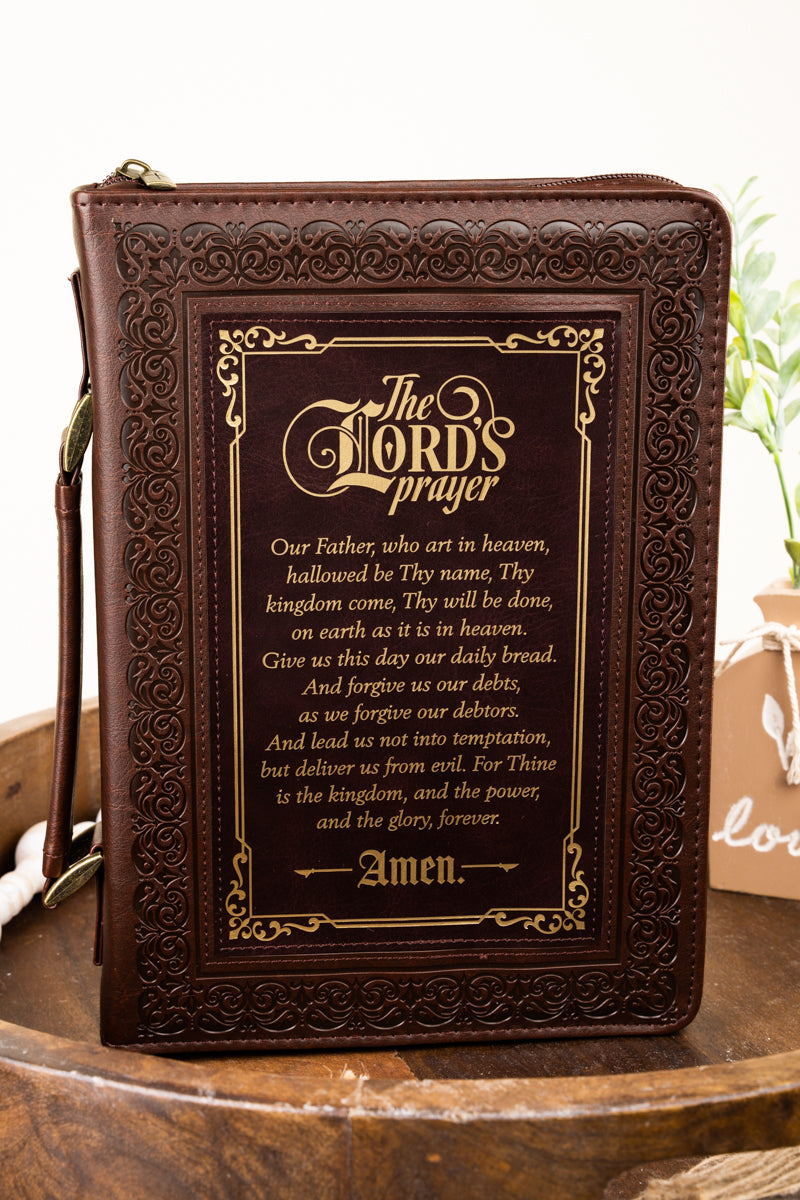 The
LORD'S
prayer
Our Father, who art in heaven,
hallowed be Thy name, Thy
kingdom come, Thy will be done,
on earth as it is in heaven.
Give us this day our daily bread.
And forgive us our debts,
as we forgive our debtors.
And lead us not into temptation,
but deliver us from evil. For Thine
is the kingdom, and the power,
and the glory, forever.
Amen.